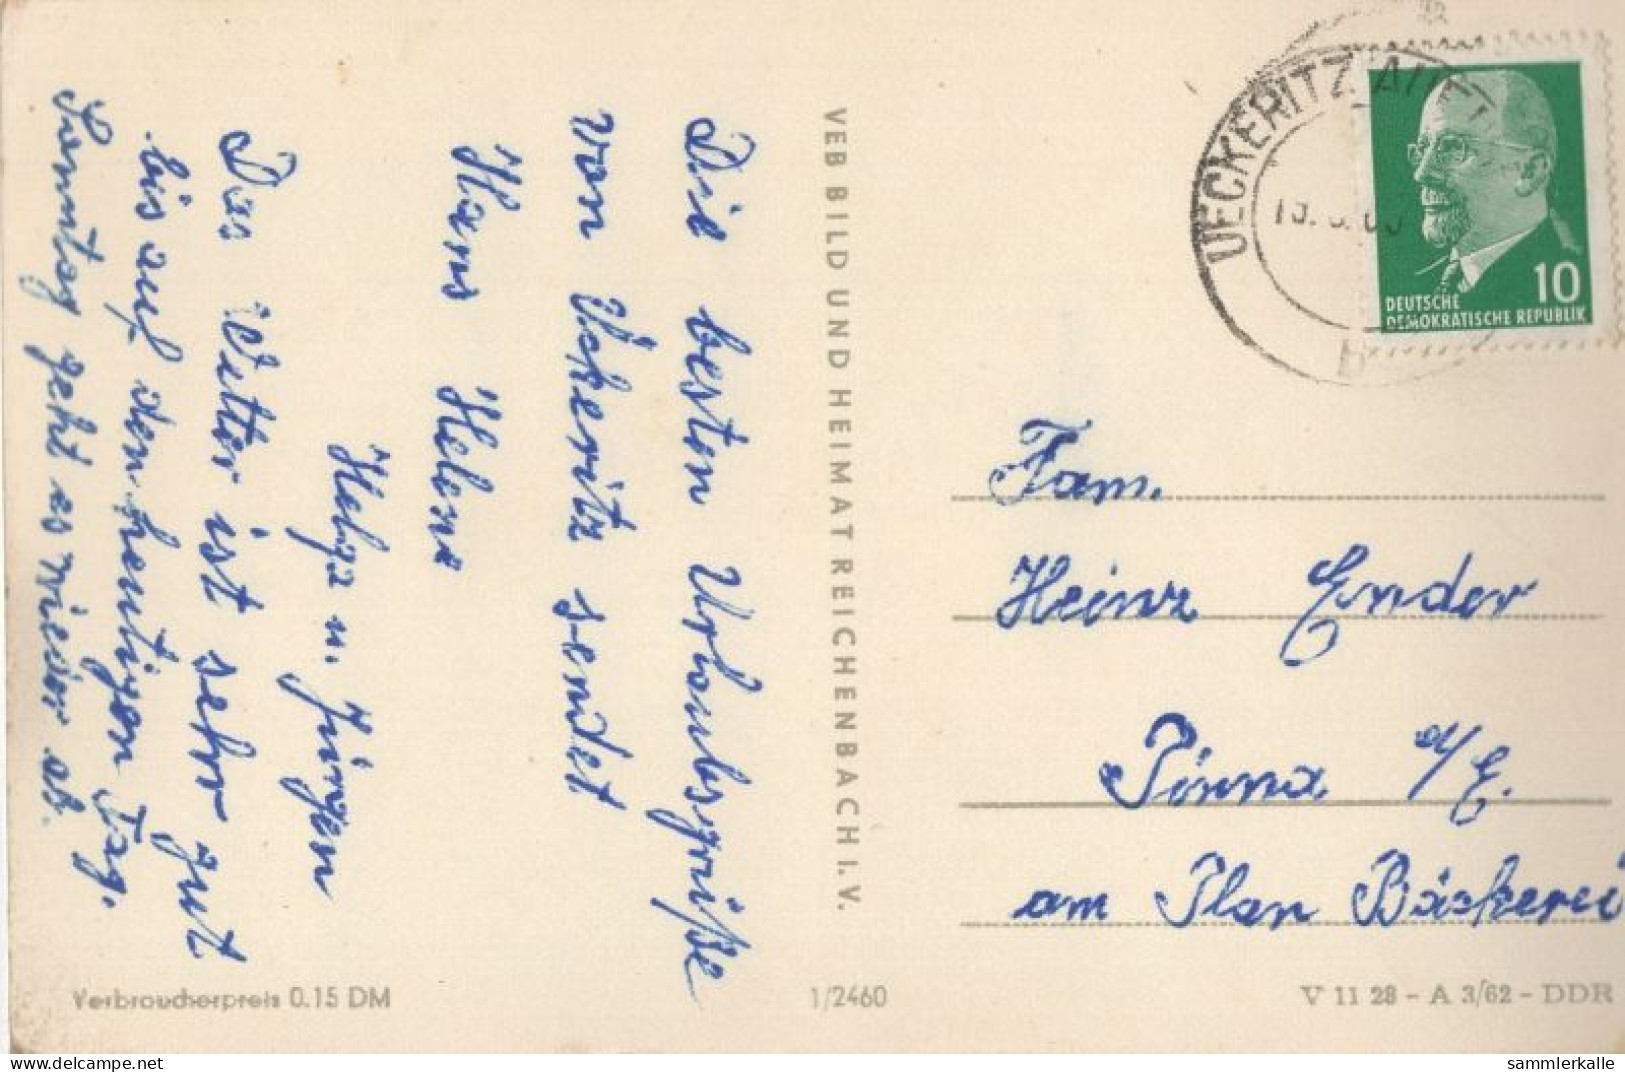 Die besten Urlaubsgrüße
von Ückeritz sendet
Hans Helene
Helga u. Jürgen
Das Wetter ist sehr gut
bis auf den heutigen Tag.
Sonntag geht es wieder ab.
Verbraucherpreis 0.15 DM
VEB BILD UND HEIMAT REICHENBACH I.V.
1/2460
UECKERITZ
10
DEUTSCHE
DEMOKRATISCHE REPUBLIK
Fam.
Heinz Ender
Pirna a/E.
am Plan Bäckerei
V 11 28 - A 3/62 - DDR
www.delcampe.net
sammlerkalle